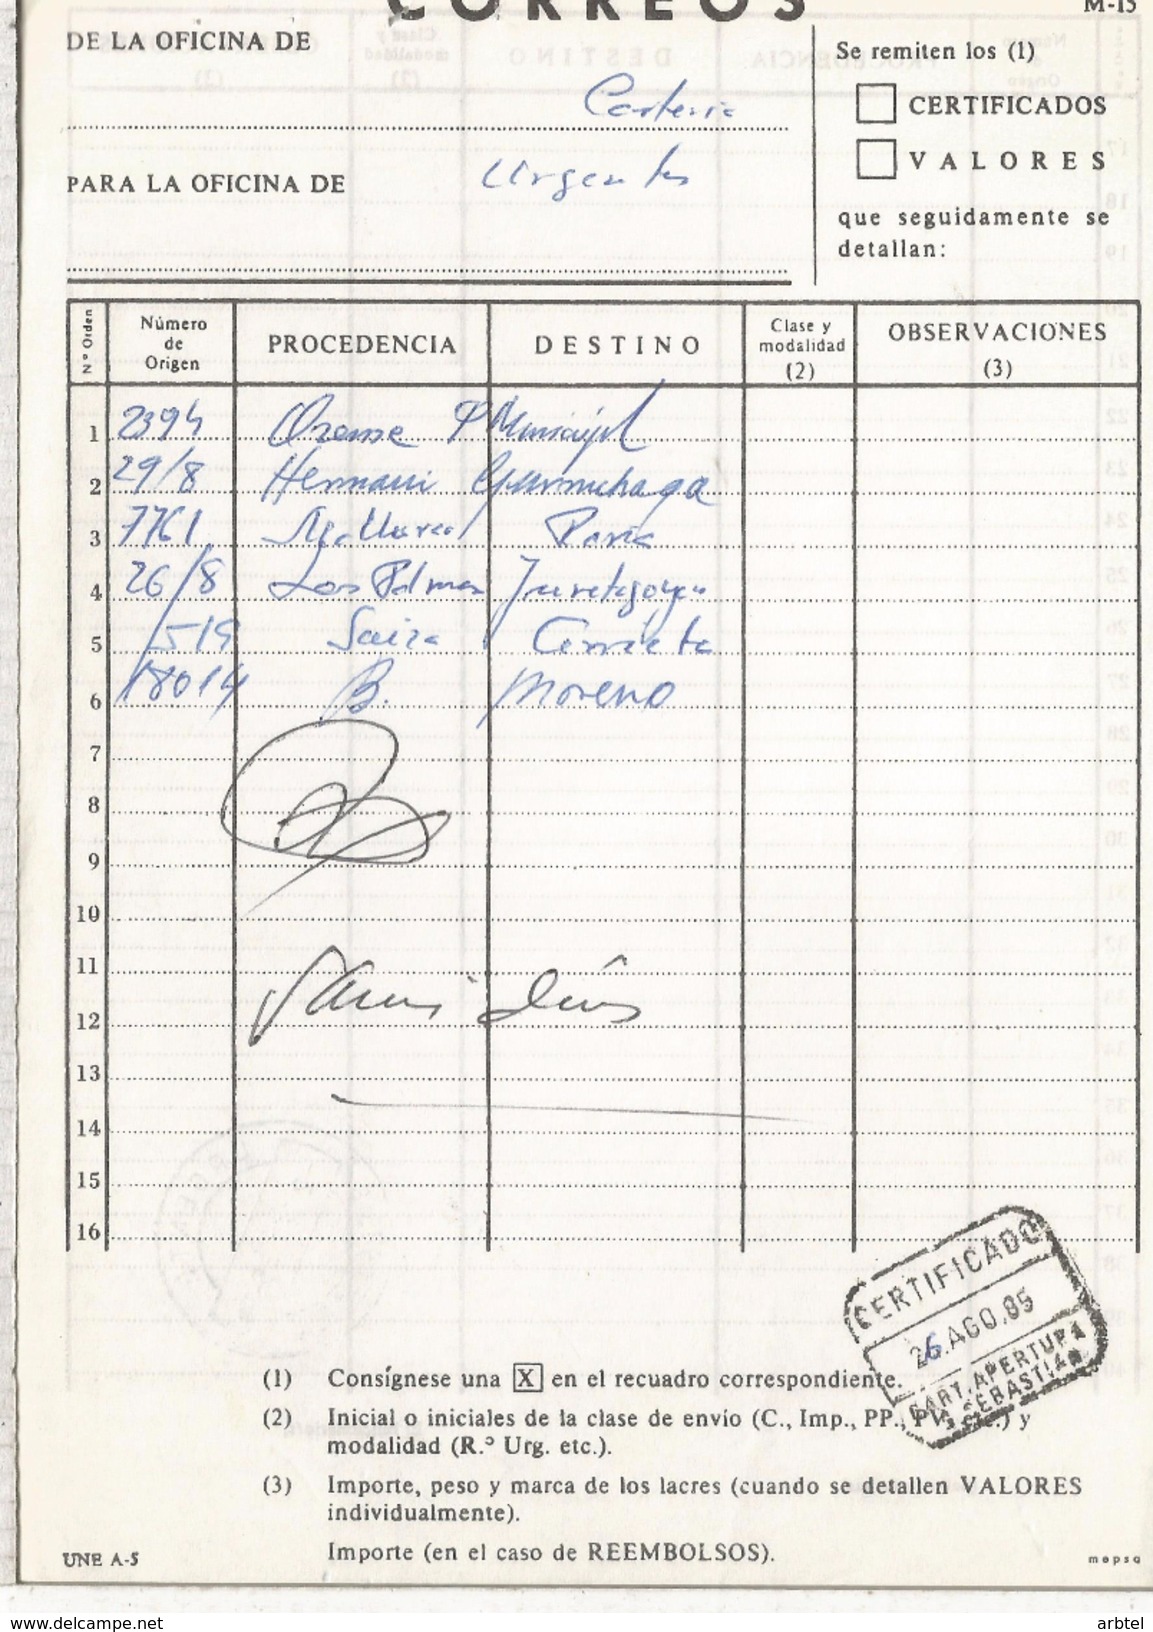 CORREOS
M-15
DE LA OFICINA DE
Carteria
PARA LA OFICINA DE
Urgentes
Se remiten los (1)
CERTIFICADOS
VALORES
que seguidamente se
detallan:
Nº Orden
Número de Origen
PROCEDENCIA
DESTINO
Clase y modalidad (2)
OBSERVACIONES (3)
1 2394 Orense P Municipal
2 29/8 Hernani Gurruchaga
3 7761 Paris
4 26/8 Las Palmas
5 519 Suiza
6 18014 B. Moreno
7
8
9
10
11
12
13
14
15
16
CERTIFICADO
26.AGO.85
CART. APERTURA
S. SEBASTIAN
(1) Consígnese una X en el recuadro correspondiente.
(2) Inicial o iniciales de la clase de envio (C., Imp., PP., PV., etc.) y
modalidad (R.º Urg. etc.).
(3) Importe, peso y marca de los lacres (cuando se detallen VALORES
individualmente).
Importe (en el caso de REEMBOLSOS).
UNE A-5
mepsa
www.delcampe.net
arbtel